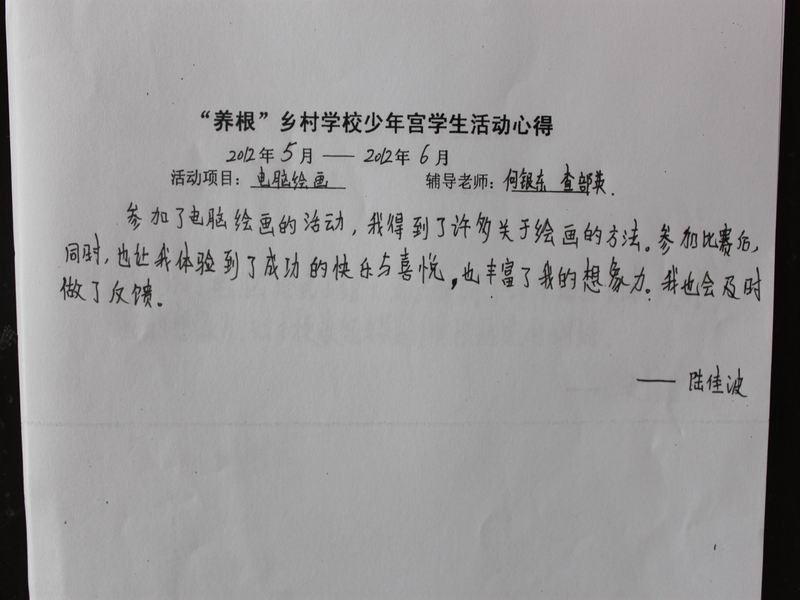 “养根”乡村学校少年宫学生活动心得
2012年5月——2012年6月
活动项目：电脑绘画 辅导老师：何银东 查部英
参加了电脑绘画的活动，我得到了许多关于绘画的方法。参加比赛后，
同时，也让我体验到了成功的快乐与喜悦，也丰富了我的想象力。我也会及时
做了反馈。
——陆佳波